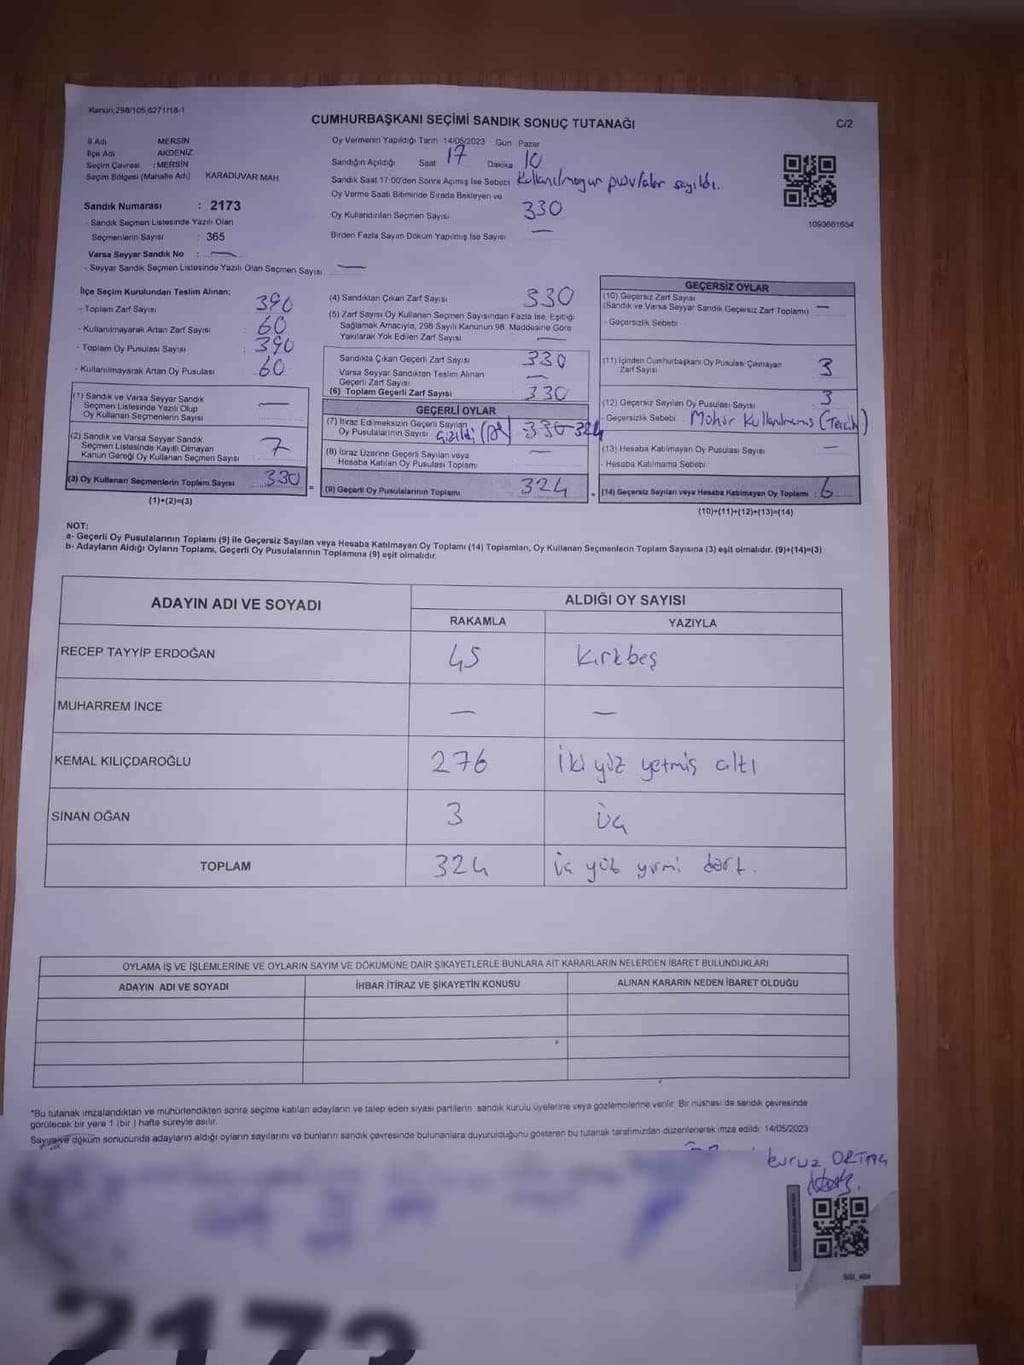 Kanun:298/105,6271/18-1
CUMHURBAŞKANI SEÇİMİ SANDIK SONUÇ TUTANAĞI
C/2
İl Adı MERSİN
İlçe Adı AKDENİZ
Seçim Çevresi : MERSİN
Seçim Bölgesi (Mahalle Adı) KARADUVAR MAH
Sandık Numarası : 2173
- Sandık Seçmen Listesinde Yazılı Olan
Seçmenlerin Sayısı : 365
Varsa Seyyar Sandık No : —
- Seyyar Sandık Seçmen Listesinde Yazılı Olan Seçmen Sayısı —
Oy Vermenin Yapıldığı Tarih 14/05/2023 Gün Pazar
Sandığın Açıldığı Saat 17 Dakika 10
Sandık Saat 17:00'den Sonra Açılmış İse Sebebi Kullanılmayan pusulalar sayıldı.
Oy Verme Saati Bitiminde Sırada Bekleyen ve
Oy Kullandırılan Seçmen Sayısı 330
Birden Fazla Sayım Döküm Yapılmış İse Sayısı —
1093661654
İlçe Seçim Kurulundan Teslim Alınan;
- Toplam Zarf Sayısı 390
- Kullanılmayarak Artan Zarf Sayısı : 60
- Toplam Oy Pusulası Sayısı : 390
- Kullanılmayarak Artan Oy Pusulası : 60
(1) Sandık ve Varsa Seyyar Sandık
Seçmen Listesinde Yazılı Olup
Oy Kullanan Seçmenlerin Sayısı —
(2) Sandık ve Varsa Seyyar Sandık
Seçmen Listesinde Kayıtlı Olmayan
Kanun Gereği Oy Kullanan Seçmen Sayısı 7
(3) Oy Kullanan Seçmenlerin Toplam Sayısı 330
(1)+(2)=(3)
(4) Sandıktan Çıkan Zarf Sayısı 330
(5) Zarf Sayısı Oy Kullanan Seçmen Sayısından Fazla İse, Eşitliği
Sağlamak Amacıyla, 298 Sayılı Kanunun 98. Maddesine Göre
Yakılarak Yok Edilen Zarf Sayısı —
Sandıkta Çıkan Geçerli Zarf Sayısı 330
Varsa Seyyar Sandıktan Teslim Alınan
Geçerli Zarf Sayısı —
(6) Toplam Geçerli Zarf Sayısı 330
GEÇERLİ OYLAR
(7) İtiraz Edilmeksizin Geçerli Sayılan
Oy Pusulalarının Sayısı 330 324
(8) İtiraz Üzerine Geçerli Sayılan veya
Hesaba Katılan Oy Pusulası Toplamı —
= (9) Geçerli Oy Pusulalarının Toplamı 324
GEÇERSİZ OYLAR
(10) Geçersiz Zarf Sayısı
(Sandık ve Varsa Seyyar Sandık Geçersiz Zarf Toplamı) —
- Geçersizlik Sebebi
(11) İçinden Cumhurbaşkanı Oy Pusulası Çıkmayan
Zarf Sayısı 3
(12) Geçersiz Sayılan Oy Pusulası Sayısı 3
- Geçersizlik Sebebi : Mühür Kullanılmamış (Tercih)
(13) Hesaba Katılmayan Oy Pusulası Sayısı —
- Hesaba Katılmama Sebebi
+ (14) Geçersiz Sayılan veya Hesaba Katılmayan Oy Toplamı : 6
(10)+(11)+(12)+(13)=(14)
NOT:
a- Geçerli Oy Pusulalarının Toplamı (9) ile Geçersiz Sayılan veya Hesaba Katılmayan Oy Toplamı (14) Toplamları, Oy Kullanan Seçmenlerin Toplam Sayısına (3) eşit olmalıdır. (9)+(14)=(3)
b- Adayların Aldığı Oyların Toplamı, Geçerli Oy Pusulalarının Toplamına (9) eşit olmalıdır.
ADAYIN ADI VE SOYADI ALDIĞI OY SAYISI
RAKAMLA YAZIYLA
RECEP TAYYİP ERDOĞAN 45 Kırkbeş
MUHARREM İNCE — —
KEMAL KILIÇDAROĞLU 276 İki yüz yetmiş altı
SİNAN OĞAN 3 üç
TOPLAM 324 üç yüz yirmi dört.
OYLAMA İŞ VE İŞLEMLERİNE VE OYLARIN SAYIM VE DÖKÜMÜNE DAİR ŞİKAYETLERLE BUNLARA AİT KARARLARIN NELERDEN İBARET BULUNDUKLARI
ADAYIN ADI VE SOYADI İHBAR İTİRAZ VE ŞİKAYETİN KONUSU ALINAN KARARIN NEDEN İBARET OLDUĞU
*Bu tutanak imzalandıktan ve mühürlendikten sonra seçime katılan adayların ve talep eden siyasi partilerin sandık kurulu üyelerine veya gözlemcilerine verilir. Bir nüshası da sandık çevresinde
görülecek bir yere 1 (bir) hafta süreyle asılır.
Sayım ve döküm sonucunda adayların aldığı oyların sayılarını ve bunların sandık çevresinde bulunanlara duyurulduğunu gösteren bu tutanak tarafımızdan düzenlenerek imza edildi. 14/05/2023
2173